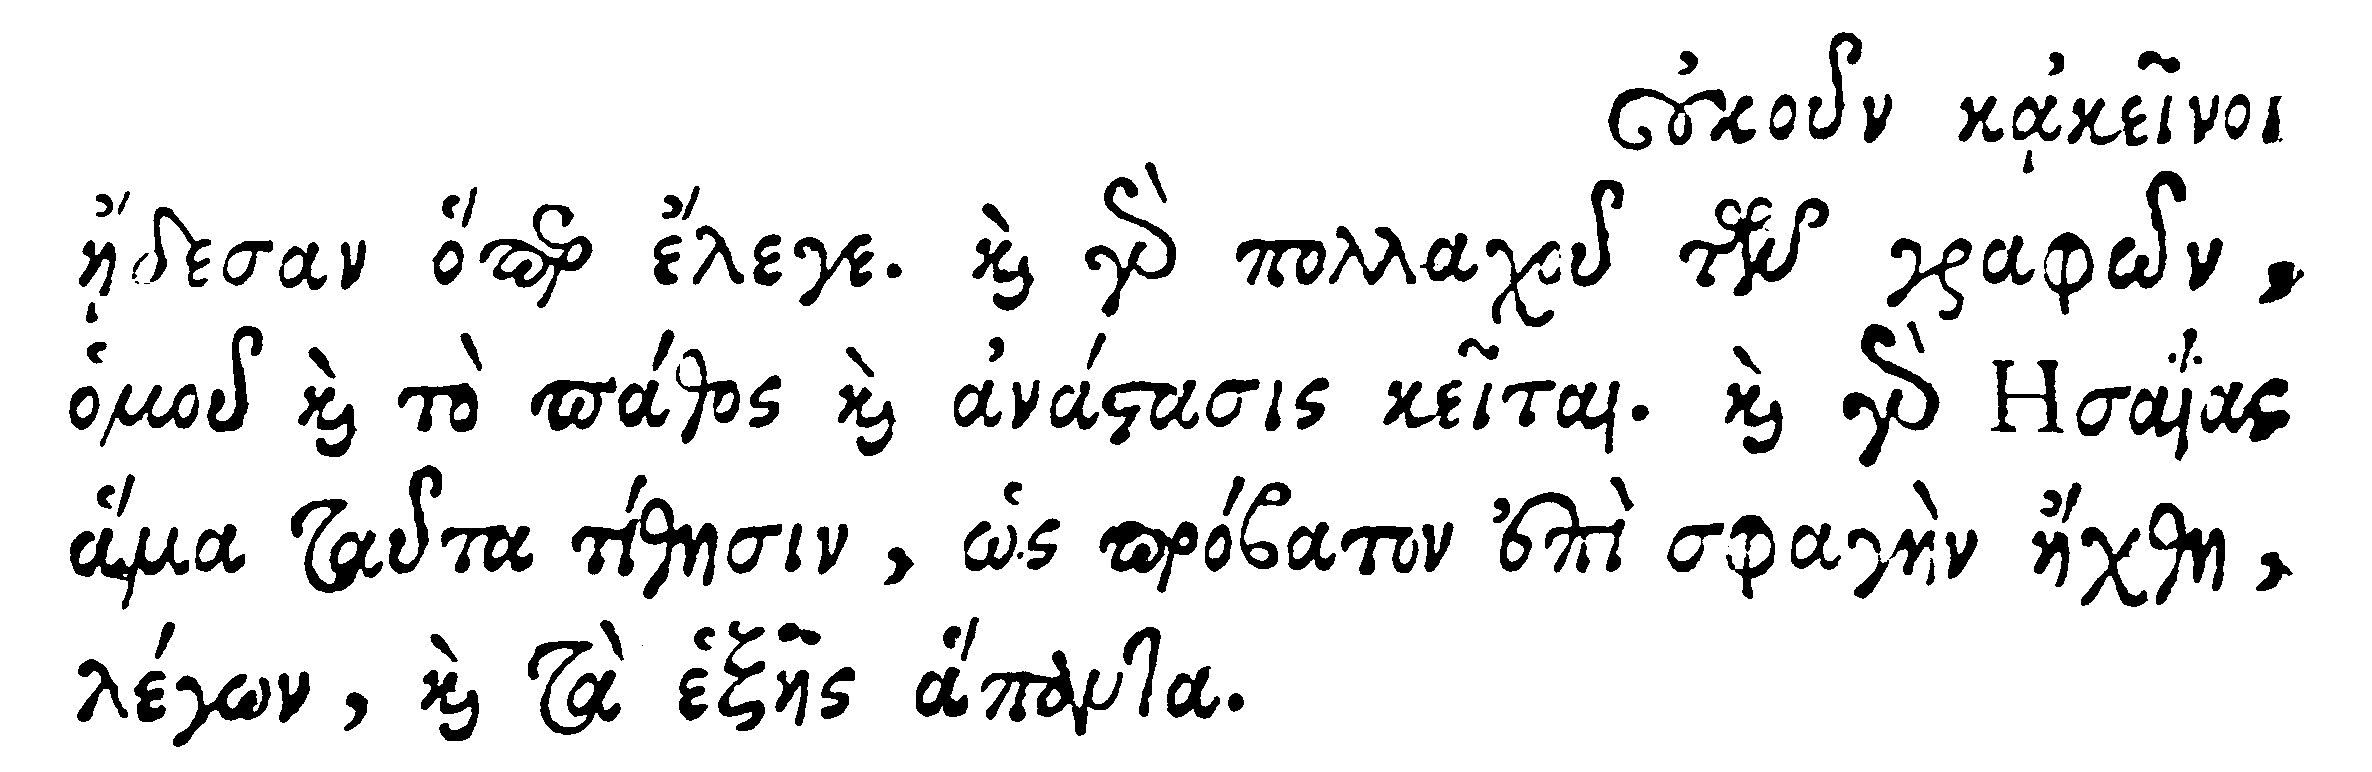 οὐκοῦν κᾀκεῖνοι
ᾔδεσαν ὅπερ ἔλεγε. καὶ γὰρ πολλαχοῦ τῶν γραφῶν,
ὁμοῦ καὶ τὸ πάθος καὶ ἀνάστασις κεῖται. καὶ γὰρ Ησαΐας
ἅμα ταῦτα τίθησιν, ὡς πρόβατον ἐπὶ σφαγὴν ἤχθη,
λέγων, καὶ τὰ ἑξῆς ἅπαντα.